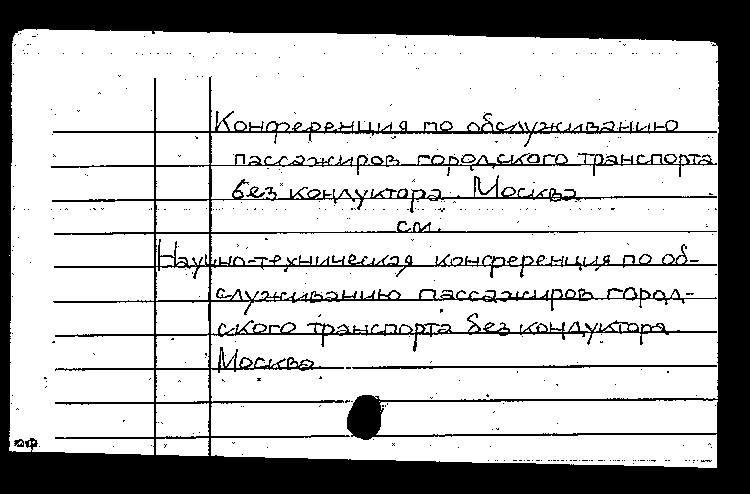 Конференция по обслуживанию
пассажиров городского транспорта
без кондуктора. Москва
см.
Научно-техническая конференция по об-
служиванию пассажиров город-
ского транспорта без кондуктора.
Москва.